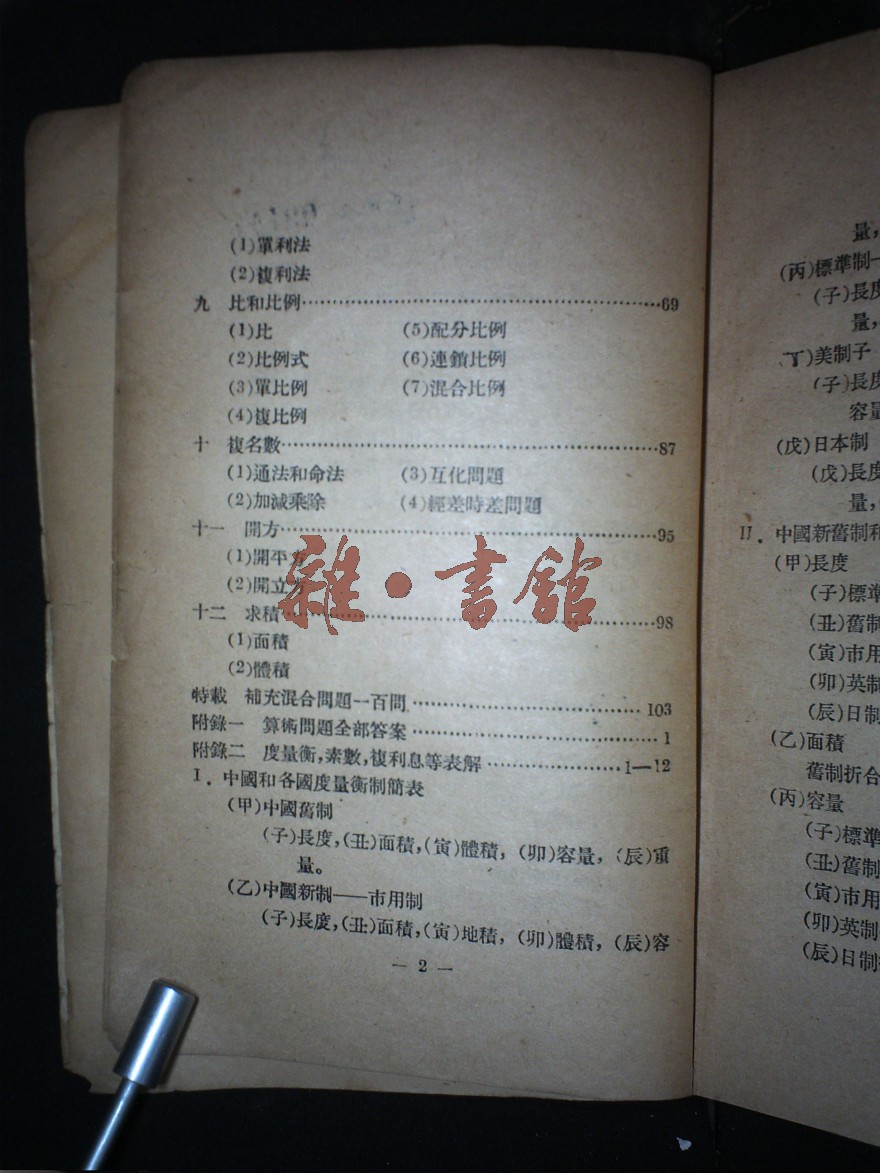 (1)單利法
(2)複利法
九 比和比例……69
(1)比 (5)配分比例
(2)比例式 (6)連鎖比例
(3)單比例 (7)混合比例
(4)複比例
十 複名數……87
(1)通法和命法 (3)互化問題
(2)加減乘除 (4)經差時差問題
十一 開方……95
(1)開平方
(2)開立方
十二 求積……98
(1)面積
(2)體積
特載 補充混合問題一百問……103
附錄一 算術問題全部答案……1
附錄二 度量衡,素數,複利息等表解……1—12
I. 中國和各國度量衡制簡表
(甲)中國舊制
(子)長度,(丑)面積,(寅)體積,(卯)容量,(辰)重
量。
(乙)中國新制——市用制
(子)長度,(丑)面積,(寅)地積,(卯)體積,(辰)容
— 2 —
雜·書館
量,
(丙)標準制—
(子)長度
量,
丁)美制子
(子)長度
容量
(戊)日本制
(戊)長度
量,
II. 中國新舊制和
(甲)長度
(子)標準
(丑)舊制
(寅)市用
(卯)英制
(辰)日制
(乙)面積
舊制折合
(丙)容量
(子)標準
(丑)舊制
(寅)市用
(卯)英制
(辰)日制